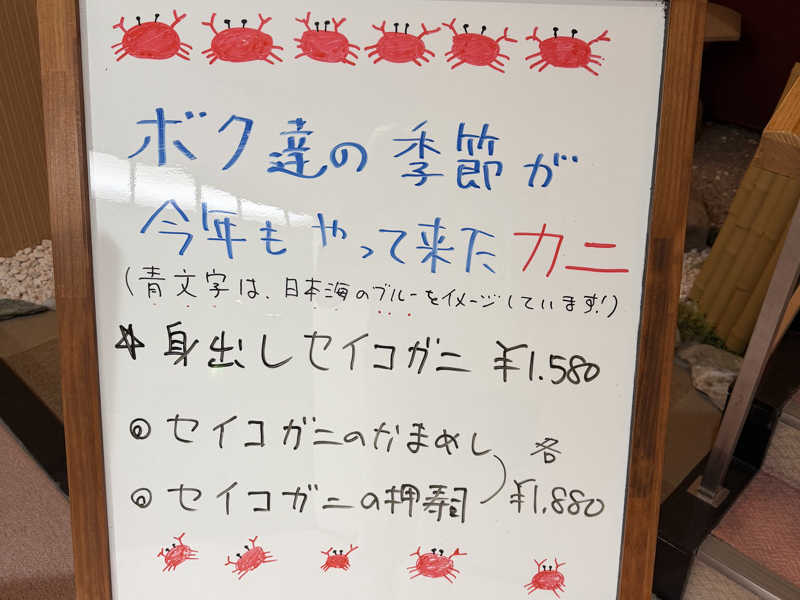 ボク達の季節が
今年もやって来たカニ
(青文字は、日本海のブルーをイメージしています!)
☆身出しセイコガニ ¥1.580
◎セイコガニのかまめし
各
◎セイコガニの押寿司 ¥1.880